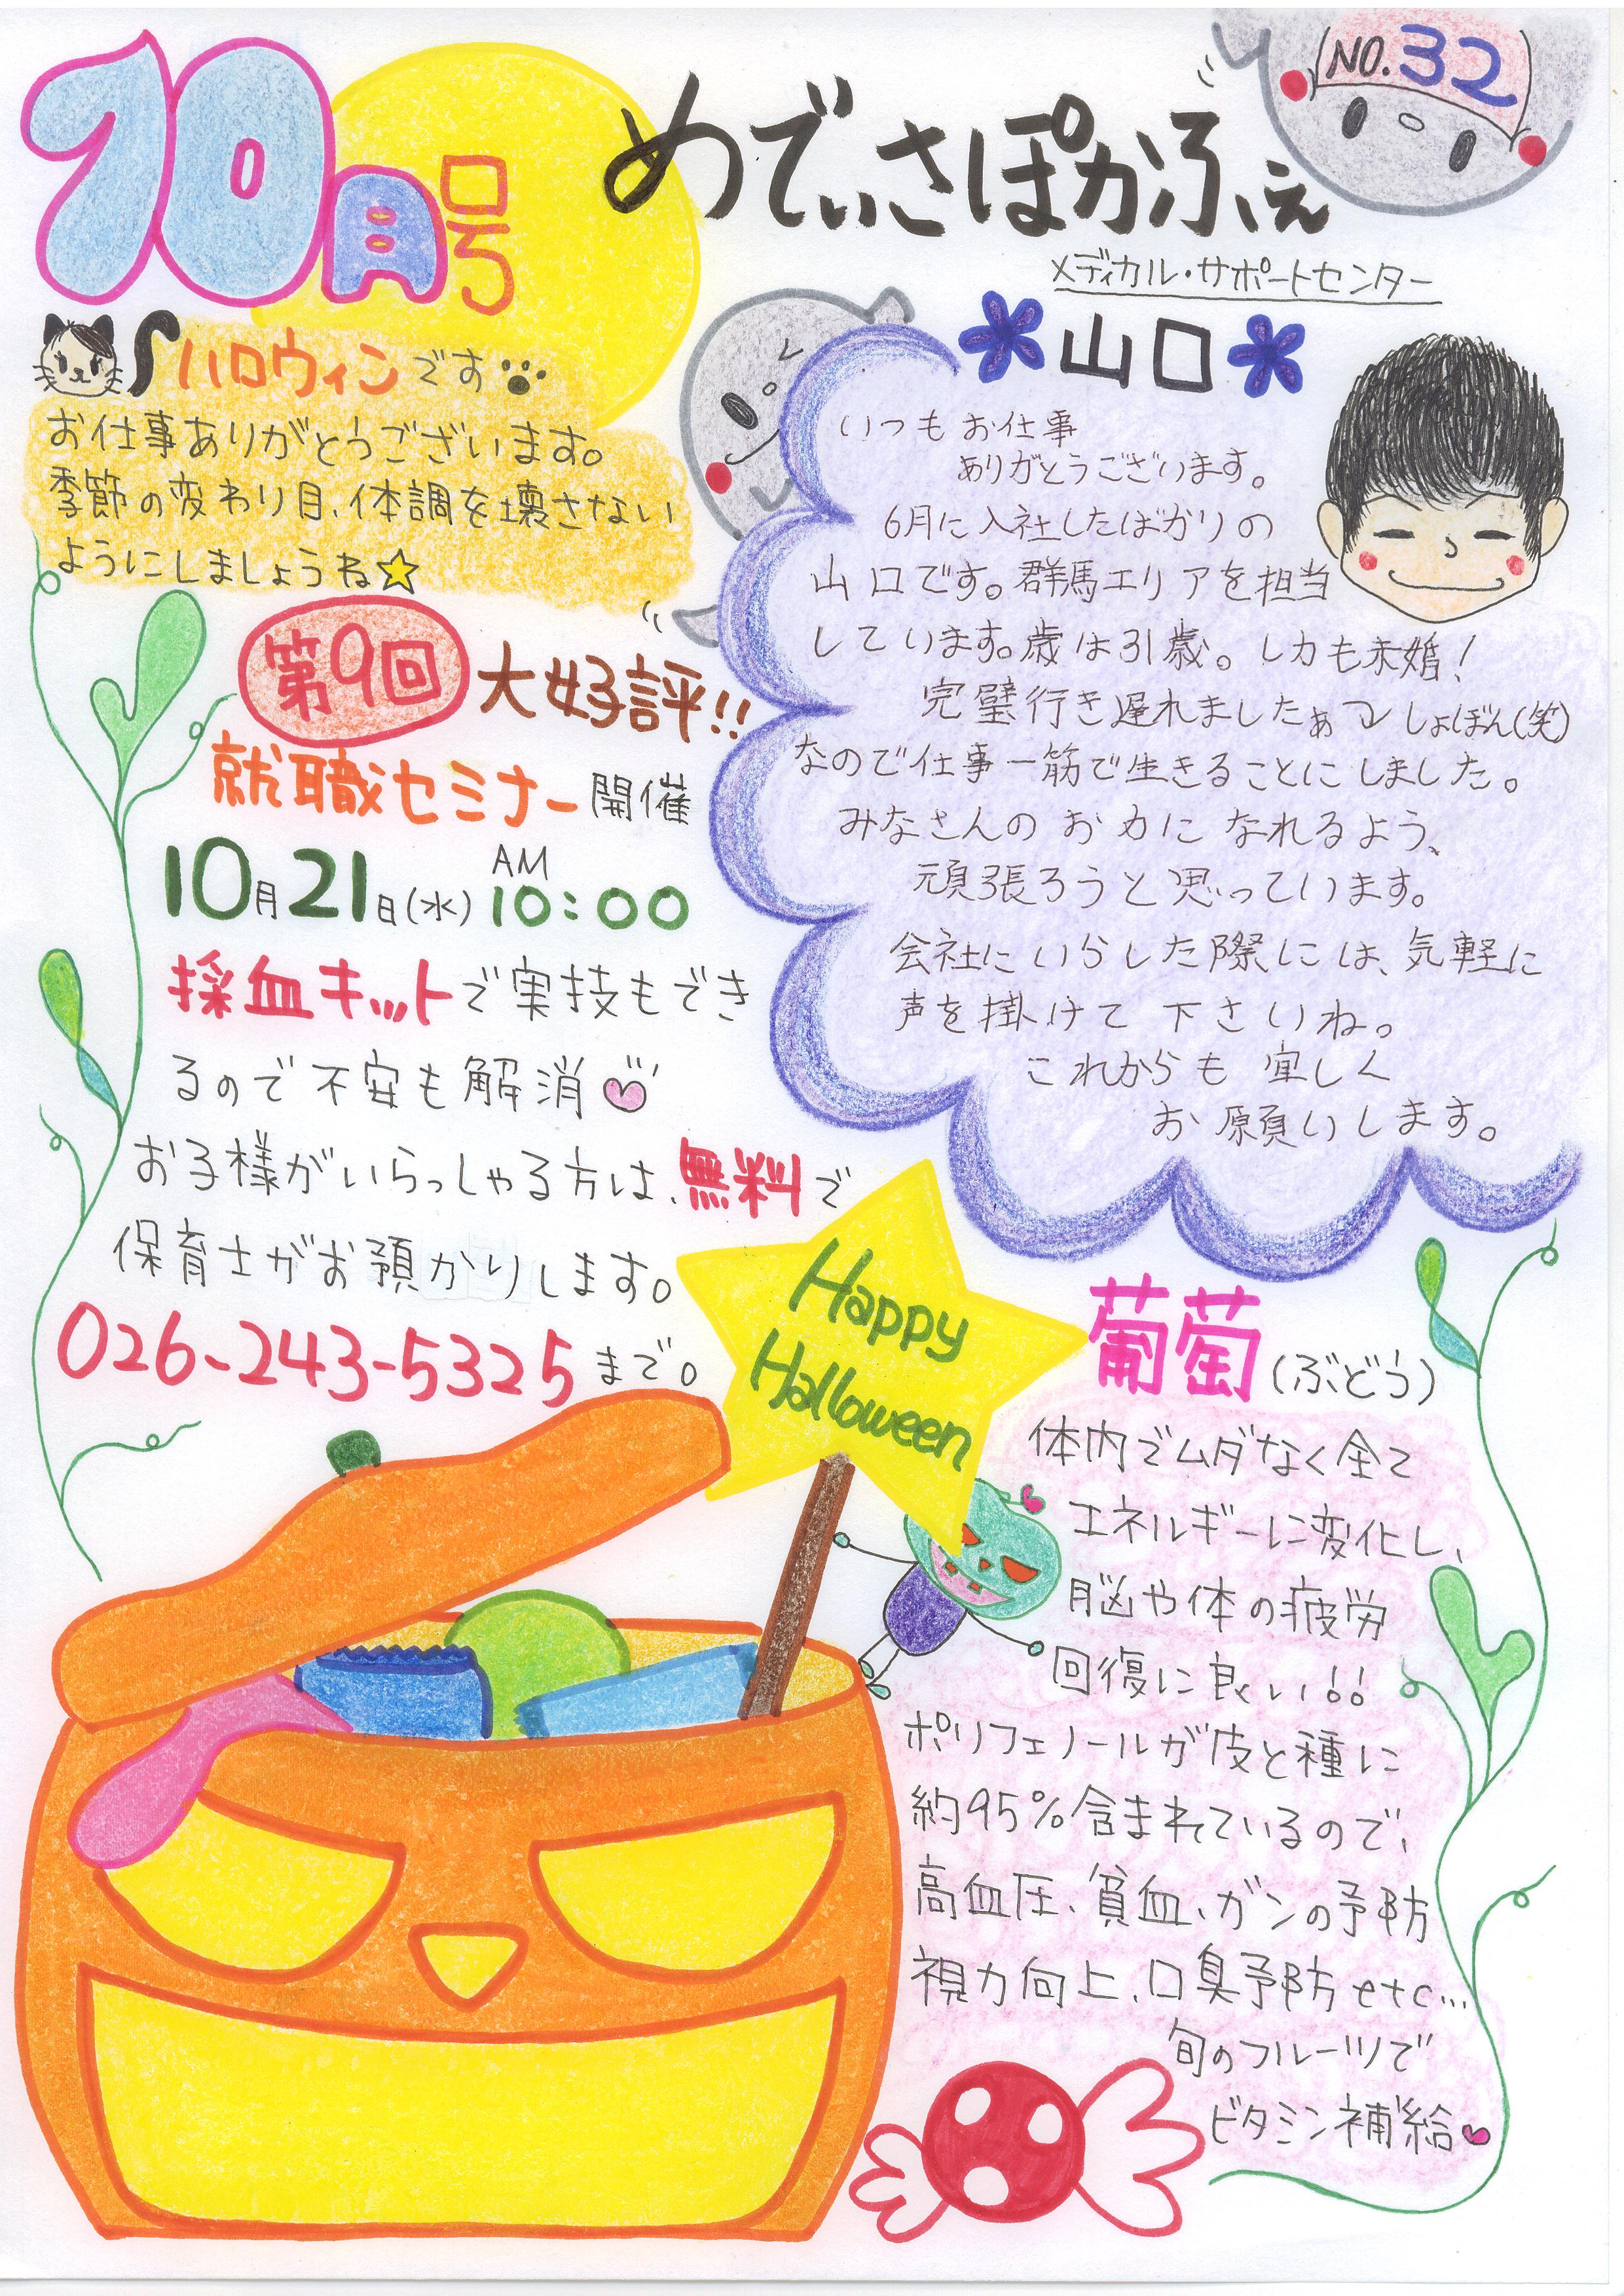 10月号
めでぃさぽかふぇ
NO.32
メディカル・サポートセンター
ハロウィンです
お仕事ありがとうございます。
季節の変わり目、体調を壊さない
ようにしましょうね☆
第9回 大好評!!
就職セミナー開催
10月21日(水) AM 10:00
採血キットで実技もでき
るので不安も解消
お子様がいらっしゃる方は、無料で
保育士がお預かりします。
026-243-5325まで。
山口
いつもお仕事
ありがとうございます。
6月に入社したばかりの
山口です。群馬エリアを担当
しています。歳は31歳。しかも未婚!
完璧行き遅れましたぁ しょぼん(笑)
なので仕事一筋で生きることにしました。
みなさんのお力になれるよう、
頑張ろうと思っています。
会社にいらした際には、気軽に
声を掛けて下さいね。
これからも宜しく
お願いします。
Happy
Halloween
葡萄(ぶどう)
体内でムダなく全て
エネルギーに変化し、
脳や体の疲労
回復に良い!!
ポリフェノールが皮と種に
約95%含まれているので、
高血圧、貧血、ガンの予防
視力向上、口臭予防etc…
旬のフルーツで
ビタミン補給